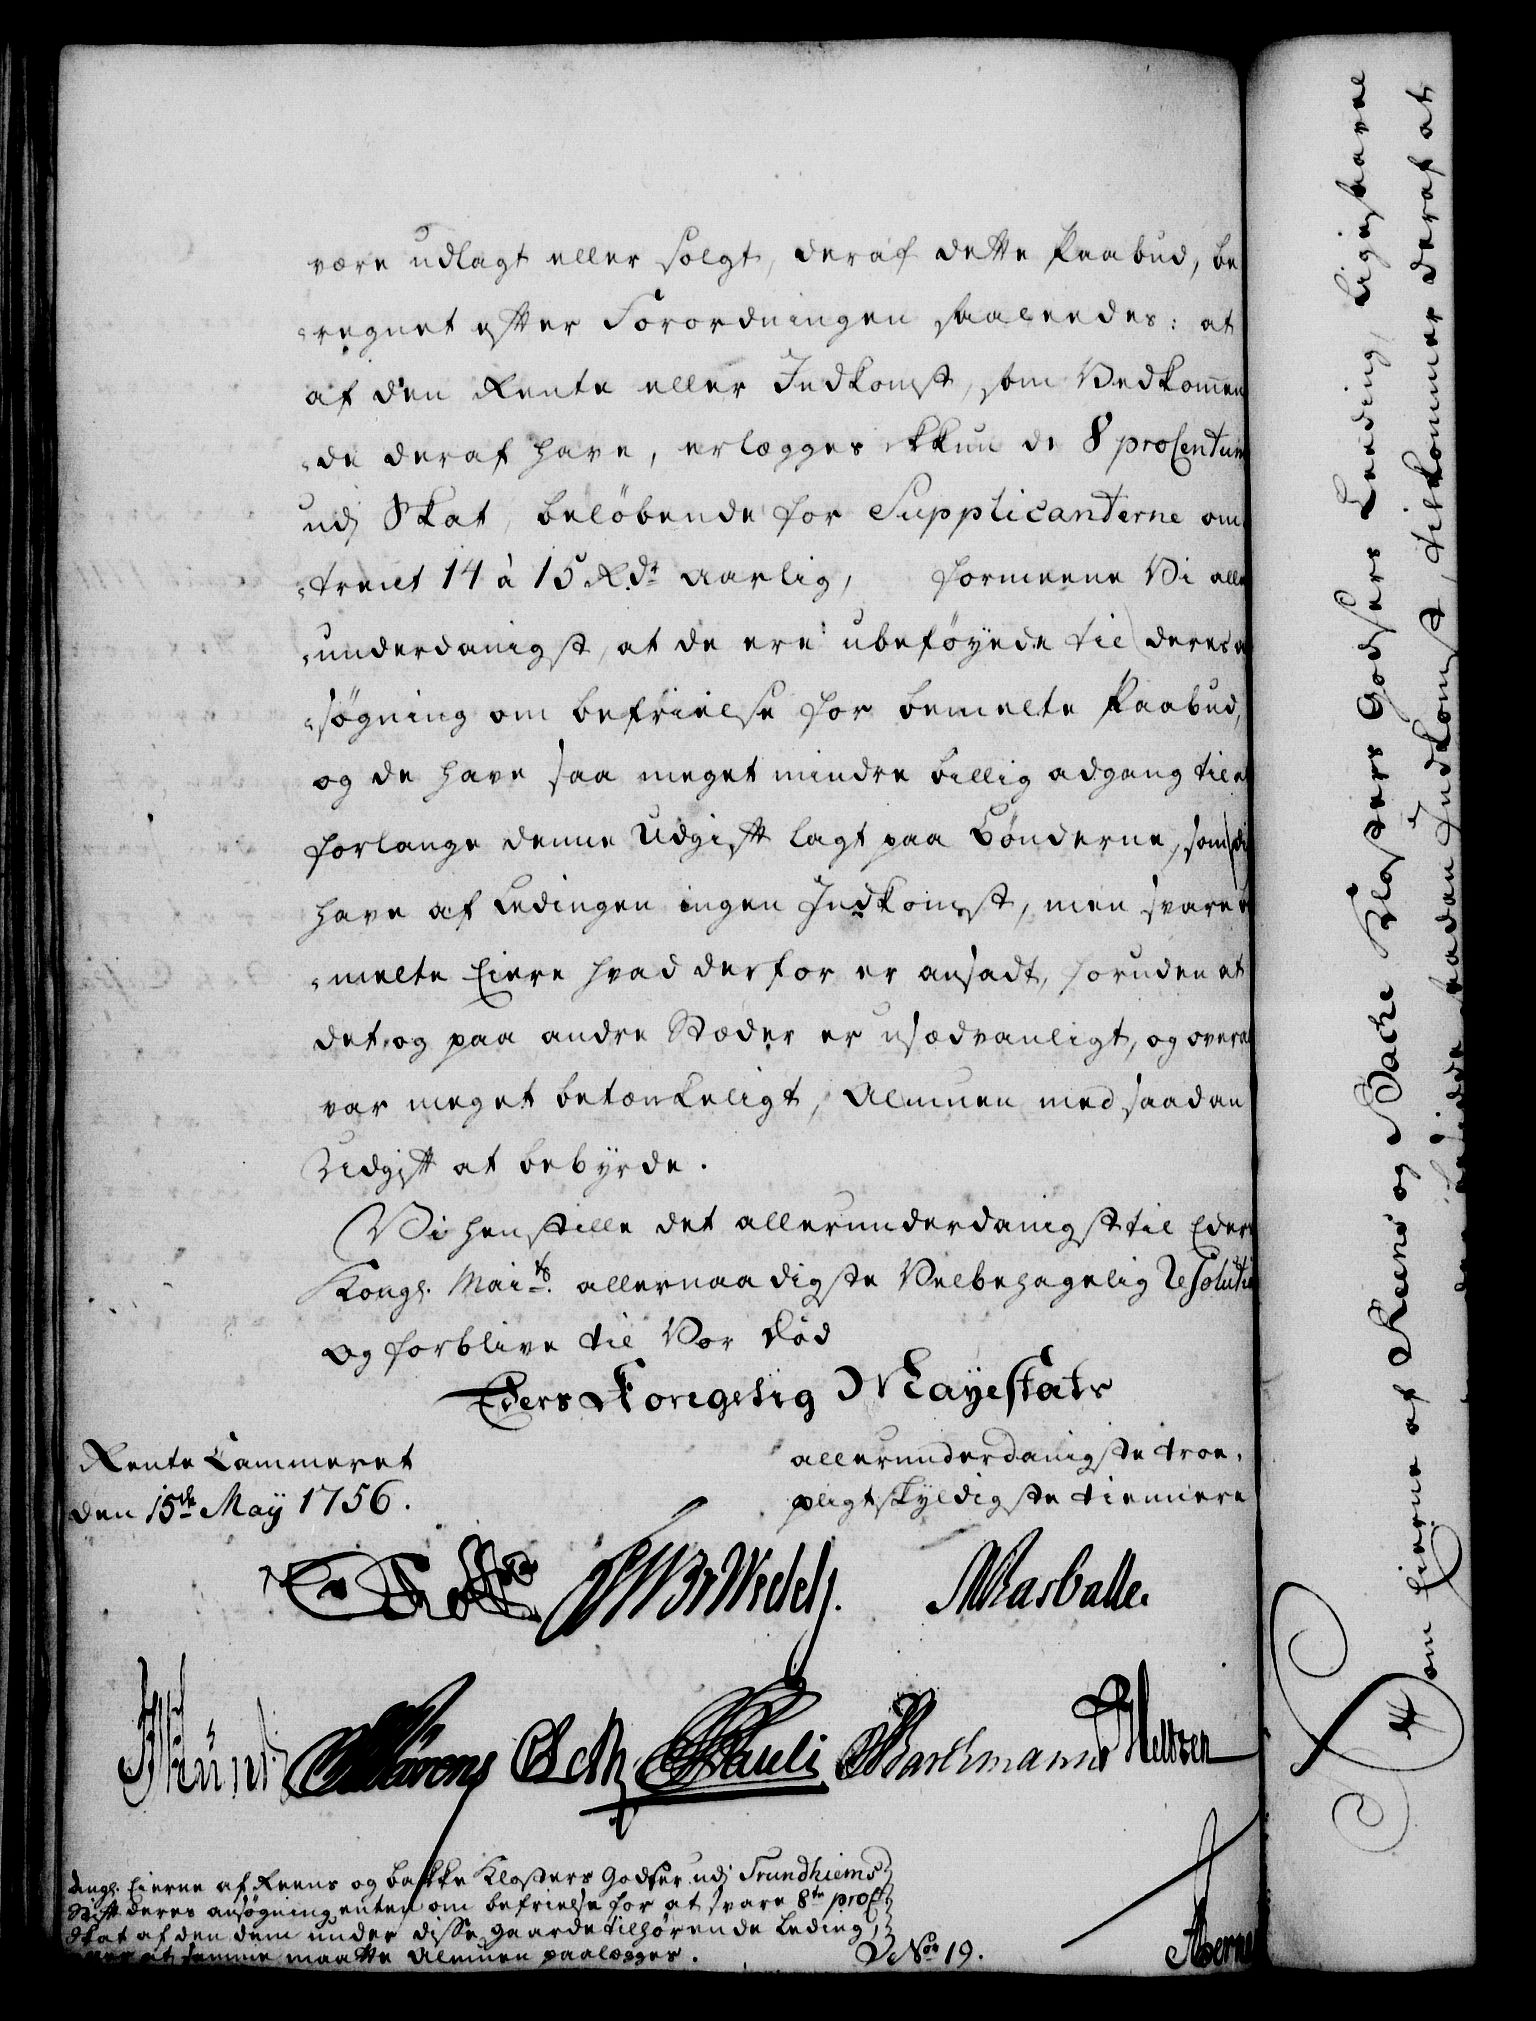 være udlagt eller solgt, deraf dette Paabud, be
-regnet efter Forordningen saaleedes: at
af den Rente eller Indkomst, som Vedkom̄en
-de deraf have, erlægges ikkun de 8 proCentum
udj Skat, beløbende for Supplicanterne om
-trent 14 à 15 Rdr aarlig, formeene Vi aller
-underdanigst, at de ere ubeføyede til deres an
-søgning om befrielse for bemelte Paabud,
og de have saa meget mindre billig adgang til at
forlange denne Udgift lagt paa Bønderne, som ei
have af Ledingen ingen Indkomst, men svare be
-melte Eiere hvad derfor er ansadt, foruden at
det og paa andre Stæder er usædvanligt, og overalt
var meget betænkeligt, Almuen med saadan
Udgift at bebyrde.
Vi henstille det allerunderdanigst til Eders
Kongl. Maits. allernaadigste Velbehagelig Resolution
og forblive til Vor Død
Eders Kongelig Mayestæts
allerunderdanigste troe-
pligtskyldigste tienere
Rente Cammeret
den 15de May 1756.
Wedelj.
Rasballe.
Pauli
Barchmann
Meltzen
angl. Eierne af Reens og bakke Klosters Godser udi Trundhiems
Stift deres ansøgning enten om befrielse for at svare 8te proC
Skat af den dem under disse gaarde tilhørende Leding,
at samme maatte Almuen paalægges.
No 19.
Som Eierne af Reens og Backe Klosters Godsers Leeding, ligesaavel
saadan Indkomst, tilkommer deraf at